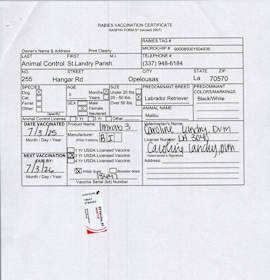 RABIES VACCINATION CERTIFICATE
RABIES TAG #
MICROCHIP #
Owner's Name & Address Print Clearly
LAST FIRST M.I. TELEPHONE #
Animal Control St.Landry Parish (337) 948-6184
NO. STREET CITY STATE ZIP
255 Hangar Rd Opelousas La 70570
SPECIES AGE SIZE PREDOMINANT BREED PREDOMINANT COLORS/MARKINGS
Dog Months Under 20 lbs.
Cat Years 20 - 50 lbs.
Ferret SEX Over 50 lbs. Labrador Retriever Black/White
Other Male
Female ANIMAL NAME
Neutered Malibu
Animal Control License
DATE VACCINATED Product Name: Imrab 3 Veterinarian's Name
7/3/25 Manufacturer: Caroline Landry DVM
Month / Day / Year B I License Number
NEXT VACCINATION 1 Yr USDA Licensed Vaccine Caroline Landry, DVM
3 Yr USDA Licensed Vaccine Veterinarian's Signature
7/3/26 4 Yr USDA Licensed Vaccine Address
Month / Day / Year Initial dose Booster dose
Vaccine Serial (lot) Number